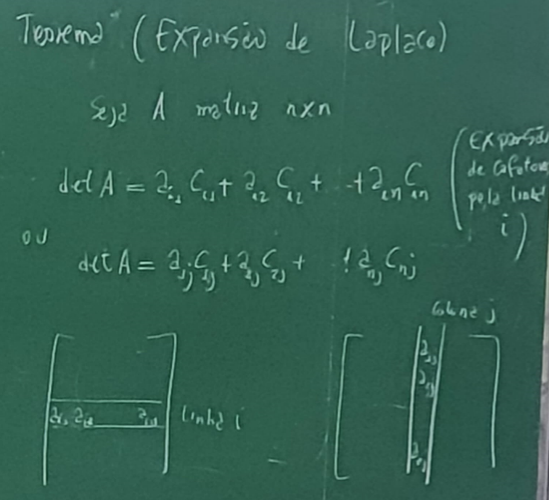 Teorema (Expansão de Laplace)
Seja A matriz nxn
det A = a_{i1} C_{i1} + a_{i2} C_{i2} + + a_{in} C_{in}
(Expansão
de cofatores
pela linha
i)
ou
det A = a_{1j} C_{1j} + a_{2j} C_{2j} + + a_{nj} C_{nj}
coluna j
a_{i1} a_{i2} a_{in} linha i
a_{1j}
a_{2j}
a_{nj}